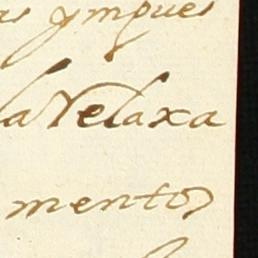 ympues
la Relaxa
mento